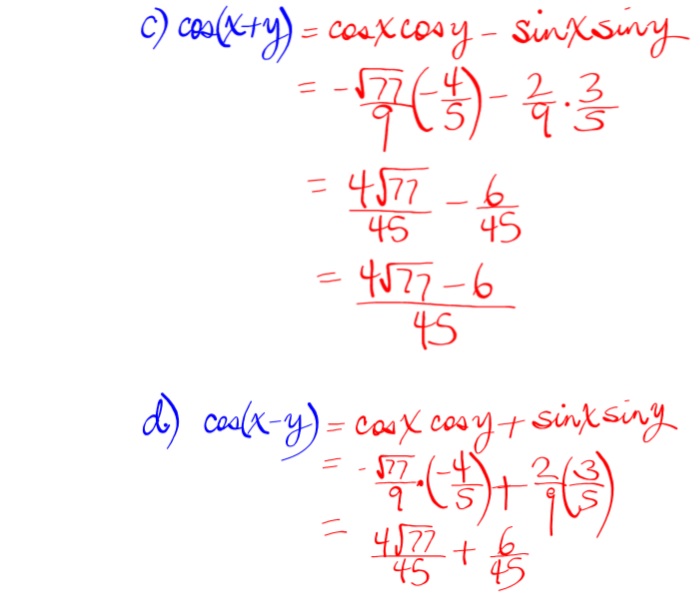 c) cos(x+y) = cosxcosy - sinxsiny
= -√77/9(-4/5) - 2/9 · 3/5
= 4√77/45 - 6/45
= (4√77 - 6)/45
d) cos(x-y) = cosx cosy + sinxsiny
= -√77/9 · (-4/5) + 2/9(3/5)
= 4√77/45 + 6/45